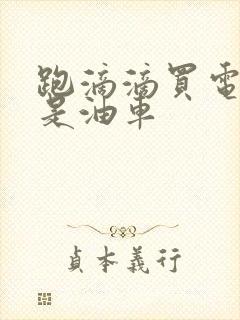 跑滴滴買電
是油車
貞本義行